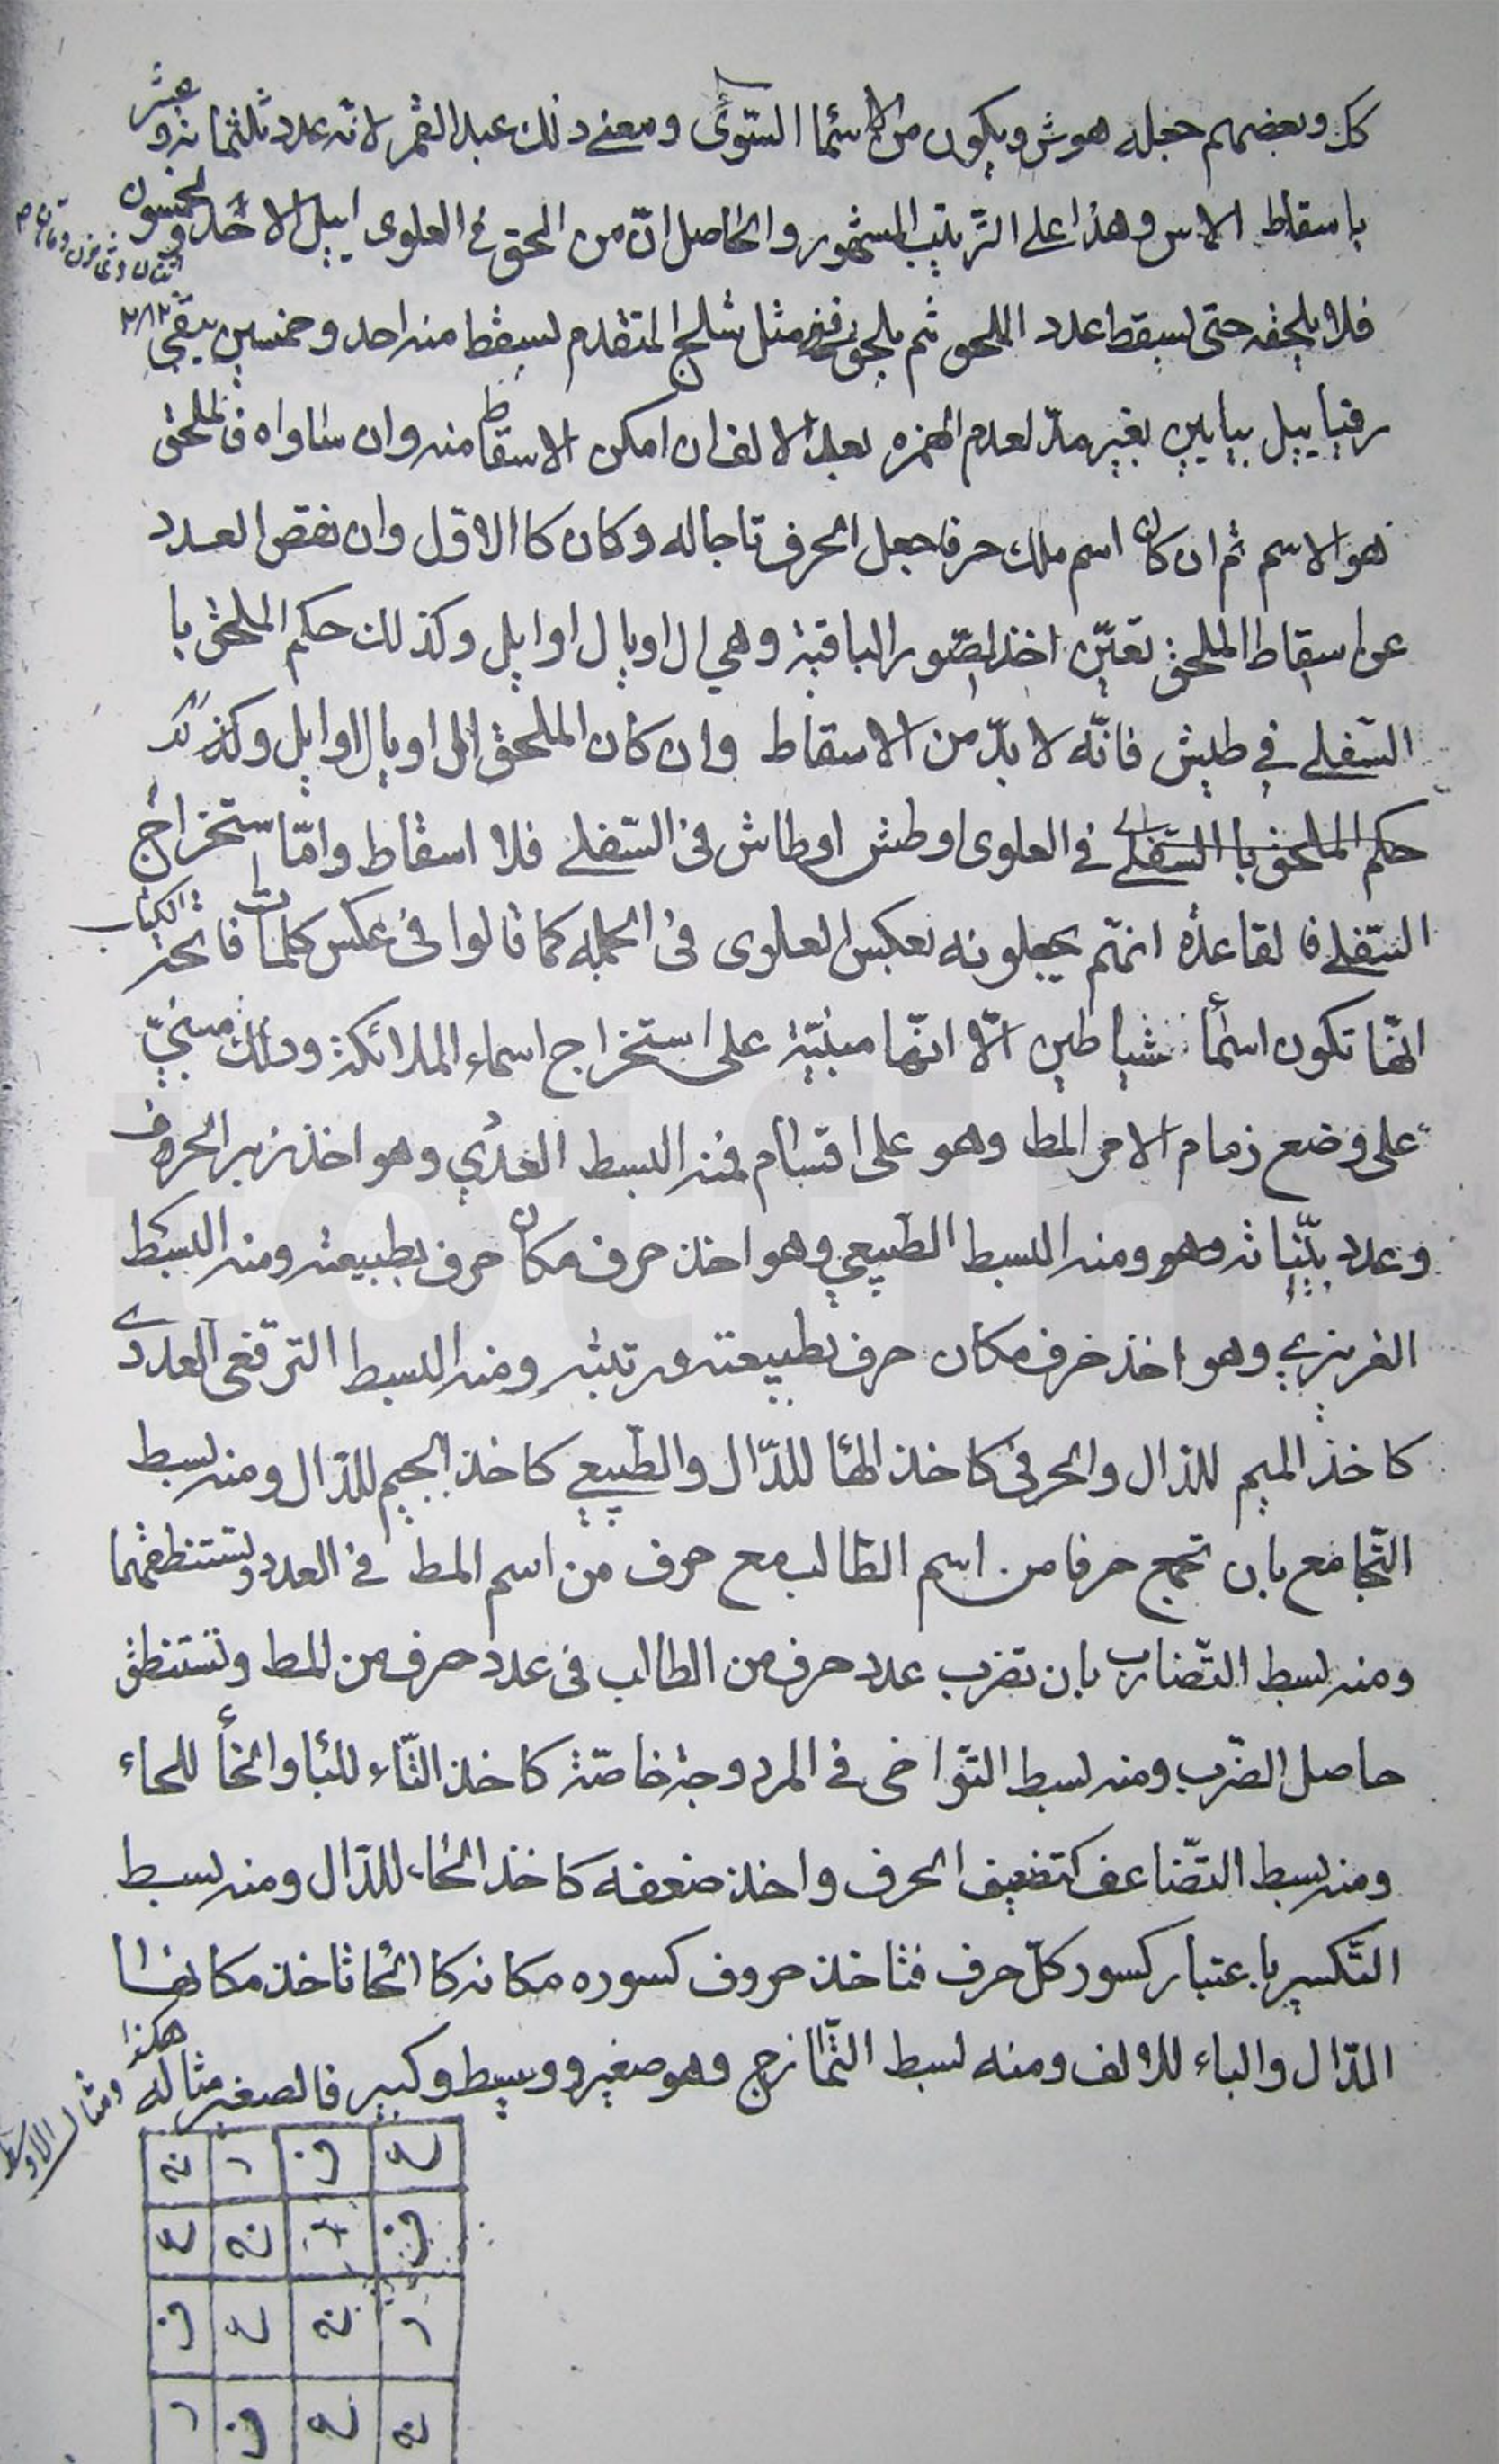 كل وبعضهم جعله هوش ويكون من الاسما السوى ومعنى ذلك عبد القمر لانه عدد ثلثمائه وعشر
باسقاط الاس وهذا على الترتيب المشهور والحاصل ان من الحق في العلوى ابيل الاحد والخمسون
اثنان وثمانون ومائتان
فلا يلحقه حتى يسقط عدد الملحق ثم يلحق مثل شلح المتقدم يسقط منه احد وخمسين يبقى ٢٨٢
رفياييل بيايين بغير مد لعدم الهمزه بعد الالف ان امكن الاسقاط منه وان ساواه فالملحق
هو الاسم ثم ان كان اسم ملك حرفا جعل الحرف تاجا له وكان كا الاول وان نقص العدد
عن اسقاط الملحق تعين اخذ الصور الباقية وهي ال اويال اوايل وكذلك حكم الملحق با
السفلي في طيش فانه لا بد من الاسقاط وان كان الملحق ال اويال اوايل وكذلك
حكم الملحق با السفلي في العلوى او طش او طاش في السفلي فلا اسقاط واما ستخراج
السفلي فا لقاعده انهم يجعلونه بعكس العلوى في الجمله كما قالوا في عكس كلمات فاتحة الكتاب
انها تكون اسمأ شياطين الا انها مبنية على استخراج اسماء الملائكة وذلك مبني
على وضع زمام الامر المط وهو على اقسام فمنه البسط العددي وهو اخذ زبر الحروف
وعدد بيناته وهو ومنه البسط الطبيعي وهو اخذ حرف مكان حرف بطبيعته ومنه البسط
الغريزي وهو اخذ حرف مكان حرف بطبيعته ورتبته ومنه البسط الترفعى العددى
كاخذ الميم للدال والحرفى كاخذ الها للدال والطبيعي كاخذ الجيم للدال ومنه بسط
التجامع بان تجمع حرفا من اسم الطالب مع حرف من اسم المط في العدد وتستنطقهما
ومنه بسط التضارب بان تضرب عدد حرف من الطالب فى عدد حرف من المط وتستنطق
حاصل الضرب ومنه بسط التواخى فى المزدوجة خاصة كاخذ التاء للبا والخأ للحاء
ومنه بسط التضاعف كتضعيف الحرف واخذ ضعفه كاخذ الحاء للدال ومنه بسط
التكسير باعتبار كسور كل حرف فتاخذ حروف كسوره مكانه كا الحا تاخذ مكانها
الدال والباء للالف ومنه بسط التمازج وهو صغير ووسيط وكبير فالصغير مثاله هكذا
ومثال الاوسط